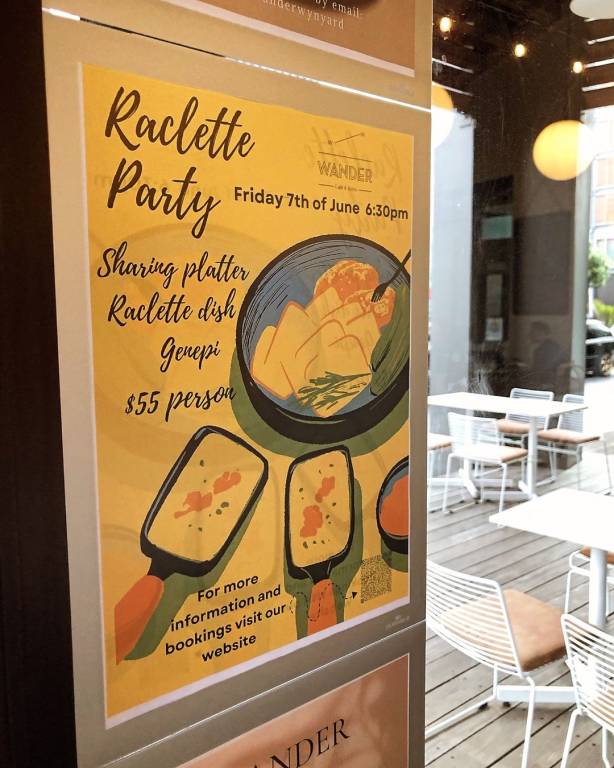 by email:
Raclette
Party
WANDER
Friday 7th of June 6:30pm
Sharing platter
Raclette dish
Genepi
$55 person
For more
information and
bookings visit our
website
ANDER